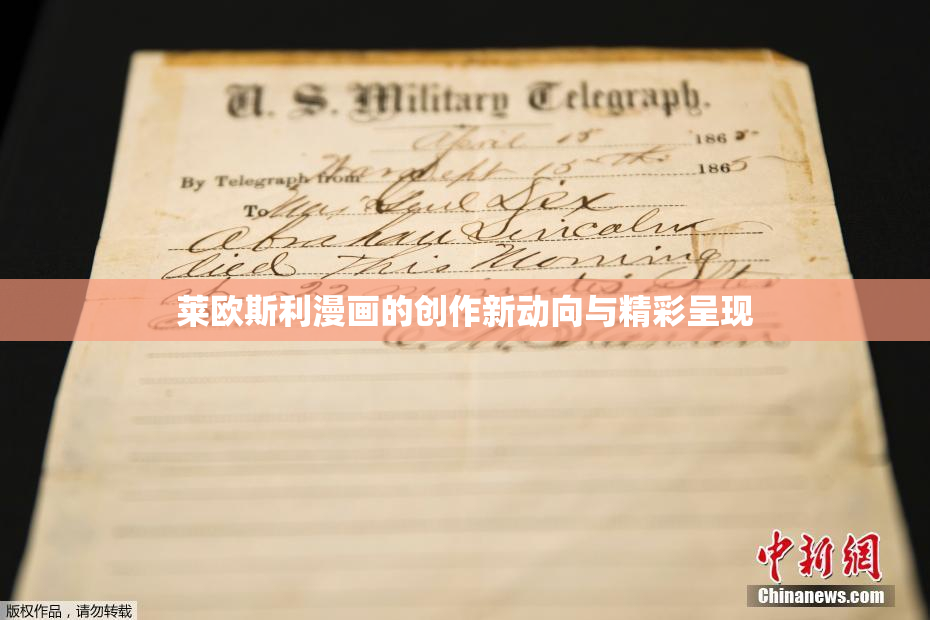 U. S. Military Telegraph.
April 15 1865
By Telegraph from War Dept 15th 1865
To Maj Genl Dix
Abraham Lincoln
died This Morning
at 22 minutes after
莱欧斯利漫画的创作新动向与精彩呈现
中新网
Chinanews.com
版权作品，请勿转载